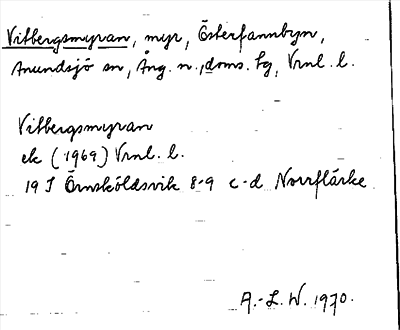 Vitbergsmyran, myr, Österfannbyn,
Anundsjö sn, Ång. n., doms. fg, Vrnl. l.
Vitbergsmyran
ek (1969) Vrnl. l.
19 J Örnsköldsvik 8-9 c-d Norrflärke
A.-L. W. 1970.